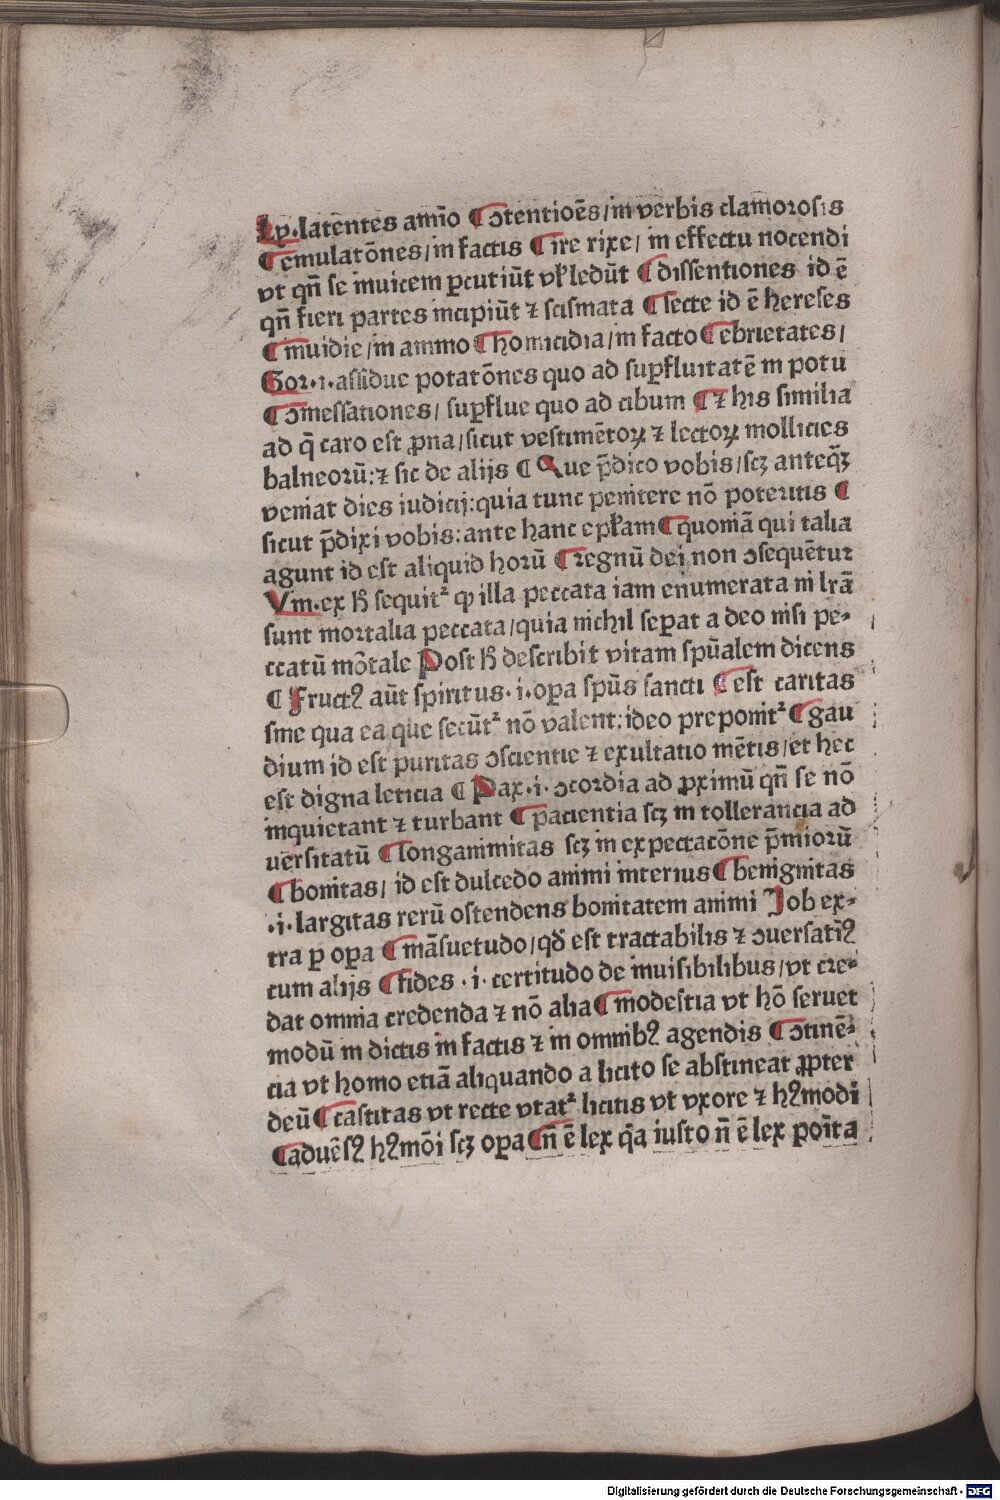 Ly.latētes amīo ¶ ꝯtentiōes/in verbis clamorosis
¶ emulatōnes/in factis ¶ ire rixe/ in effectu nocendi
vt qn̄ se inuicem ꝑcutiūt vl̓ ledūt ¶ dissentiones id ē
qn̄ fieri partes incipiūt ⁊ scismata ¶ secte id ē hereses
¶ inuidie/in animo ¶ homicidia/in facto ¶ ebrietates/
Gor.i.assidue potatōnes quo ad suꝑfluitatē in potu
¶ ꝯmessationes/ suꝑflue quo ad cibum ¶ ⁊ his similia
ad q̄ caro est ꝓna/sicut vestimētoꝝ ⁊ lectoꝝ mollicies
balneorū:⁊ sic de alijs ¶ Que p̄dico vobis/scꝫ anteqꝫ̄
veniat dies iudicij:quia tunc penitere nō poteritis ¶
sicut p̄dixi vobis:ante hanc epl̓am ¶ quoniā qui talia
agunt id est aliquid horū ¶ regnū dei non ꝯsequētur
Vm.ex h̄ sequitᷣ ꝙ illa peccata iam enumerata in lr̄a
sunt mortalia peccata/quia nichil seꝑat a deo nisi pe-
ccatū mōtale Post h̄ describit vitam spūalem dicens
¶ Fructꝰ aūt spiritus.i.oꝑa spūs sancti ¶ est caritas
sine qua ea que secūtᷣ nō valent:ideo preponitᷣ ¶ gau
dium id est puritas ꝯscientie ⁊ exultatio mētis/et hec
est digna leticia ¶ Pax.i.ꝯcordia ad ꝓximū qn̄ se nō
inquietant ⁊ turbant ¶ pacientia scꝫ in tollerancia ad
uersitatū ¶ longanimitas scꝫ in expectacōne p̄miorū
¶ bonitas/ id est dulcedo animi interius ¶ benignitas
.i.largitas rerū ostendens bonitatem animi Job ex-
tra ꝑ oꝑa ¶ māsuetudo/qd̄ est tractabilis ⁊ ꝯuersatīꝰ
cum alijs ¶ fides .i. certitudo de inuisibilibus/vt cre-
dat omnia credenda ⁊ nō alia ¶ modestia vt hō seruet
modū in dictis in factis ⁊ in omnibꝰ agendis ¶ ꝯtinē-
cia vt homo etiā aliquando a licito se abstineat ꝓpter
deū ¶ castitas vt recte vtatᷣ licitis vt vxore ⁊ hꝰmodi
¶ aduēsꝰ hꝰmōi scꝫ oꝑa ¶ n̄ ē lex q̄a iusto n̄ ē lex poīta
Digitalisierung gefördert durch die Deutsche Forschungsgemeinschaft - DFG